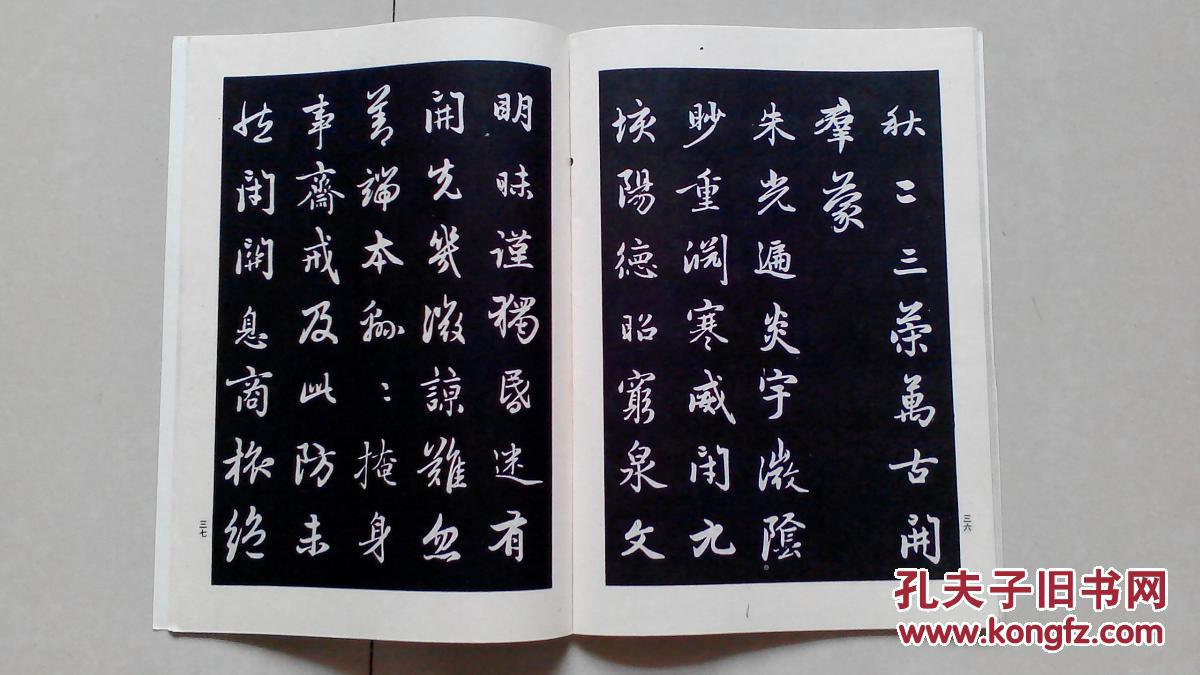 秋二三策萬古開
羣蒙
朱光遍炎宇微陰
眇重淵寒威閉九
垓陽德昭窮泉文
三六
明昧謹獨昏迷有
開先幾微諒難忽
善端本緜〻掩身
事齋戒及此防未
然閉關息商旅絕
三七
孔夫子旧书网
www.kongfz.com